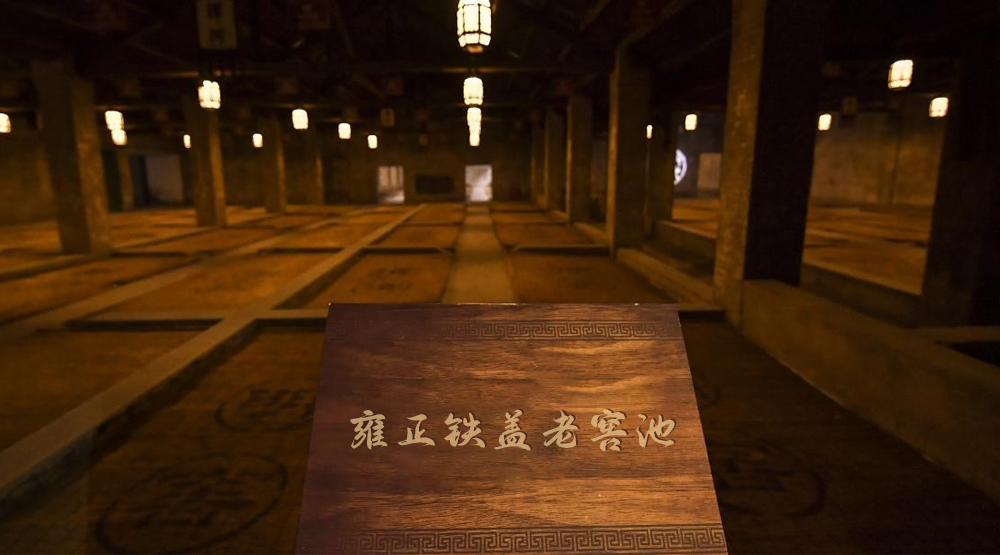 雍正铁盖老窖池